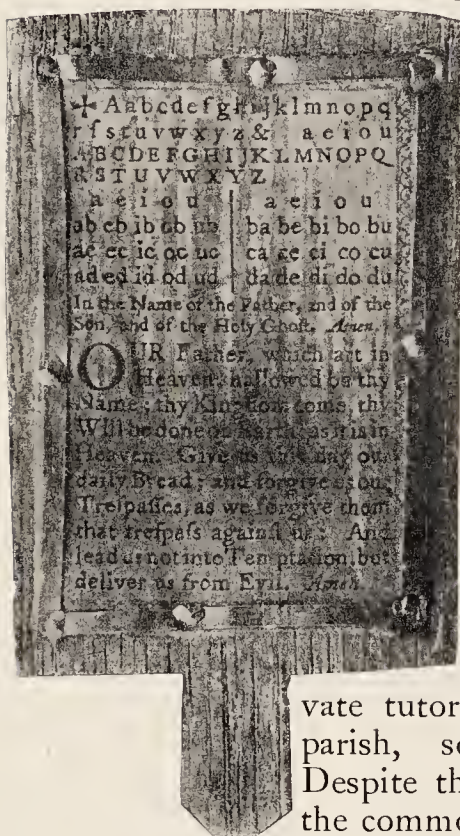 ✢ Aabcdefghijklmnopq
rſstuvwxyz& aeiou
ABCDEFGHIJKLMNOPQ
RSTUVWXYZ
a e i o u | a e i o u
ab eb ib ob ub | ba be bi bo bu
ac ec ic oc uc | ca ce ci co cu
ad ed id od ud | da de di do du
In the Name of the Father, and of the
Son, and of the Holy Ghoſt. Amen.
OUR Father, which art in
Heaven, hallowed be thy
Name; thy Kingdom come, thy
Will be done on Earth, as it is in
Heaven. Give us this day our
daily Bread; and forgive us our
Treſpaſſes, as we forgive them
that treſpaſs againſt us: And
lead us not into Temptation, but
deliver us from Evil. Amen.
vate tutor
parish, s
Despite th
the commo